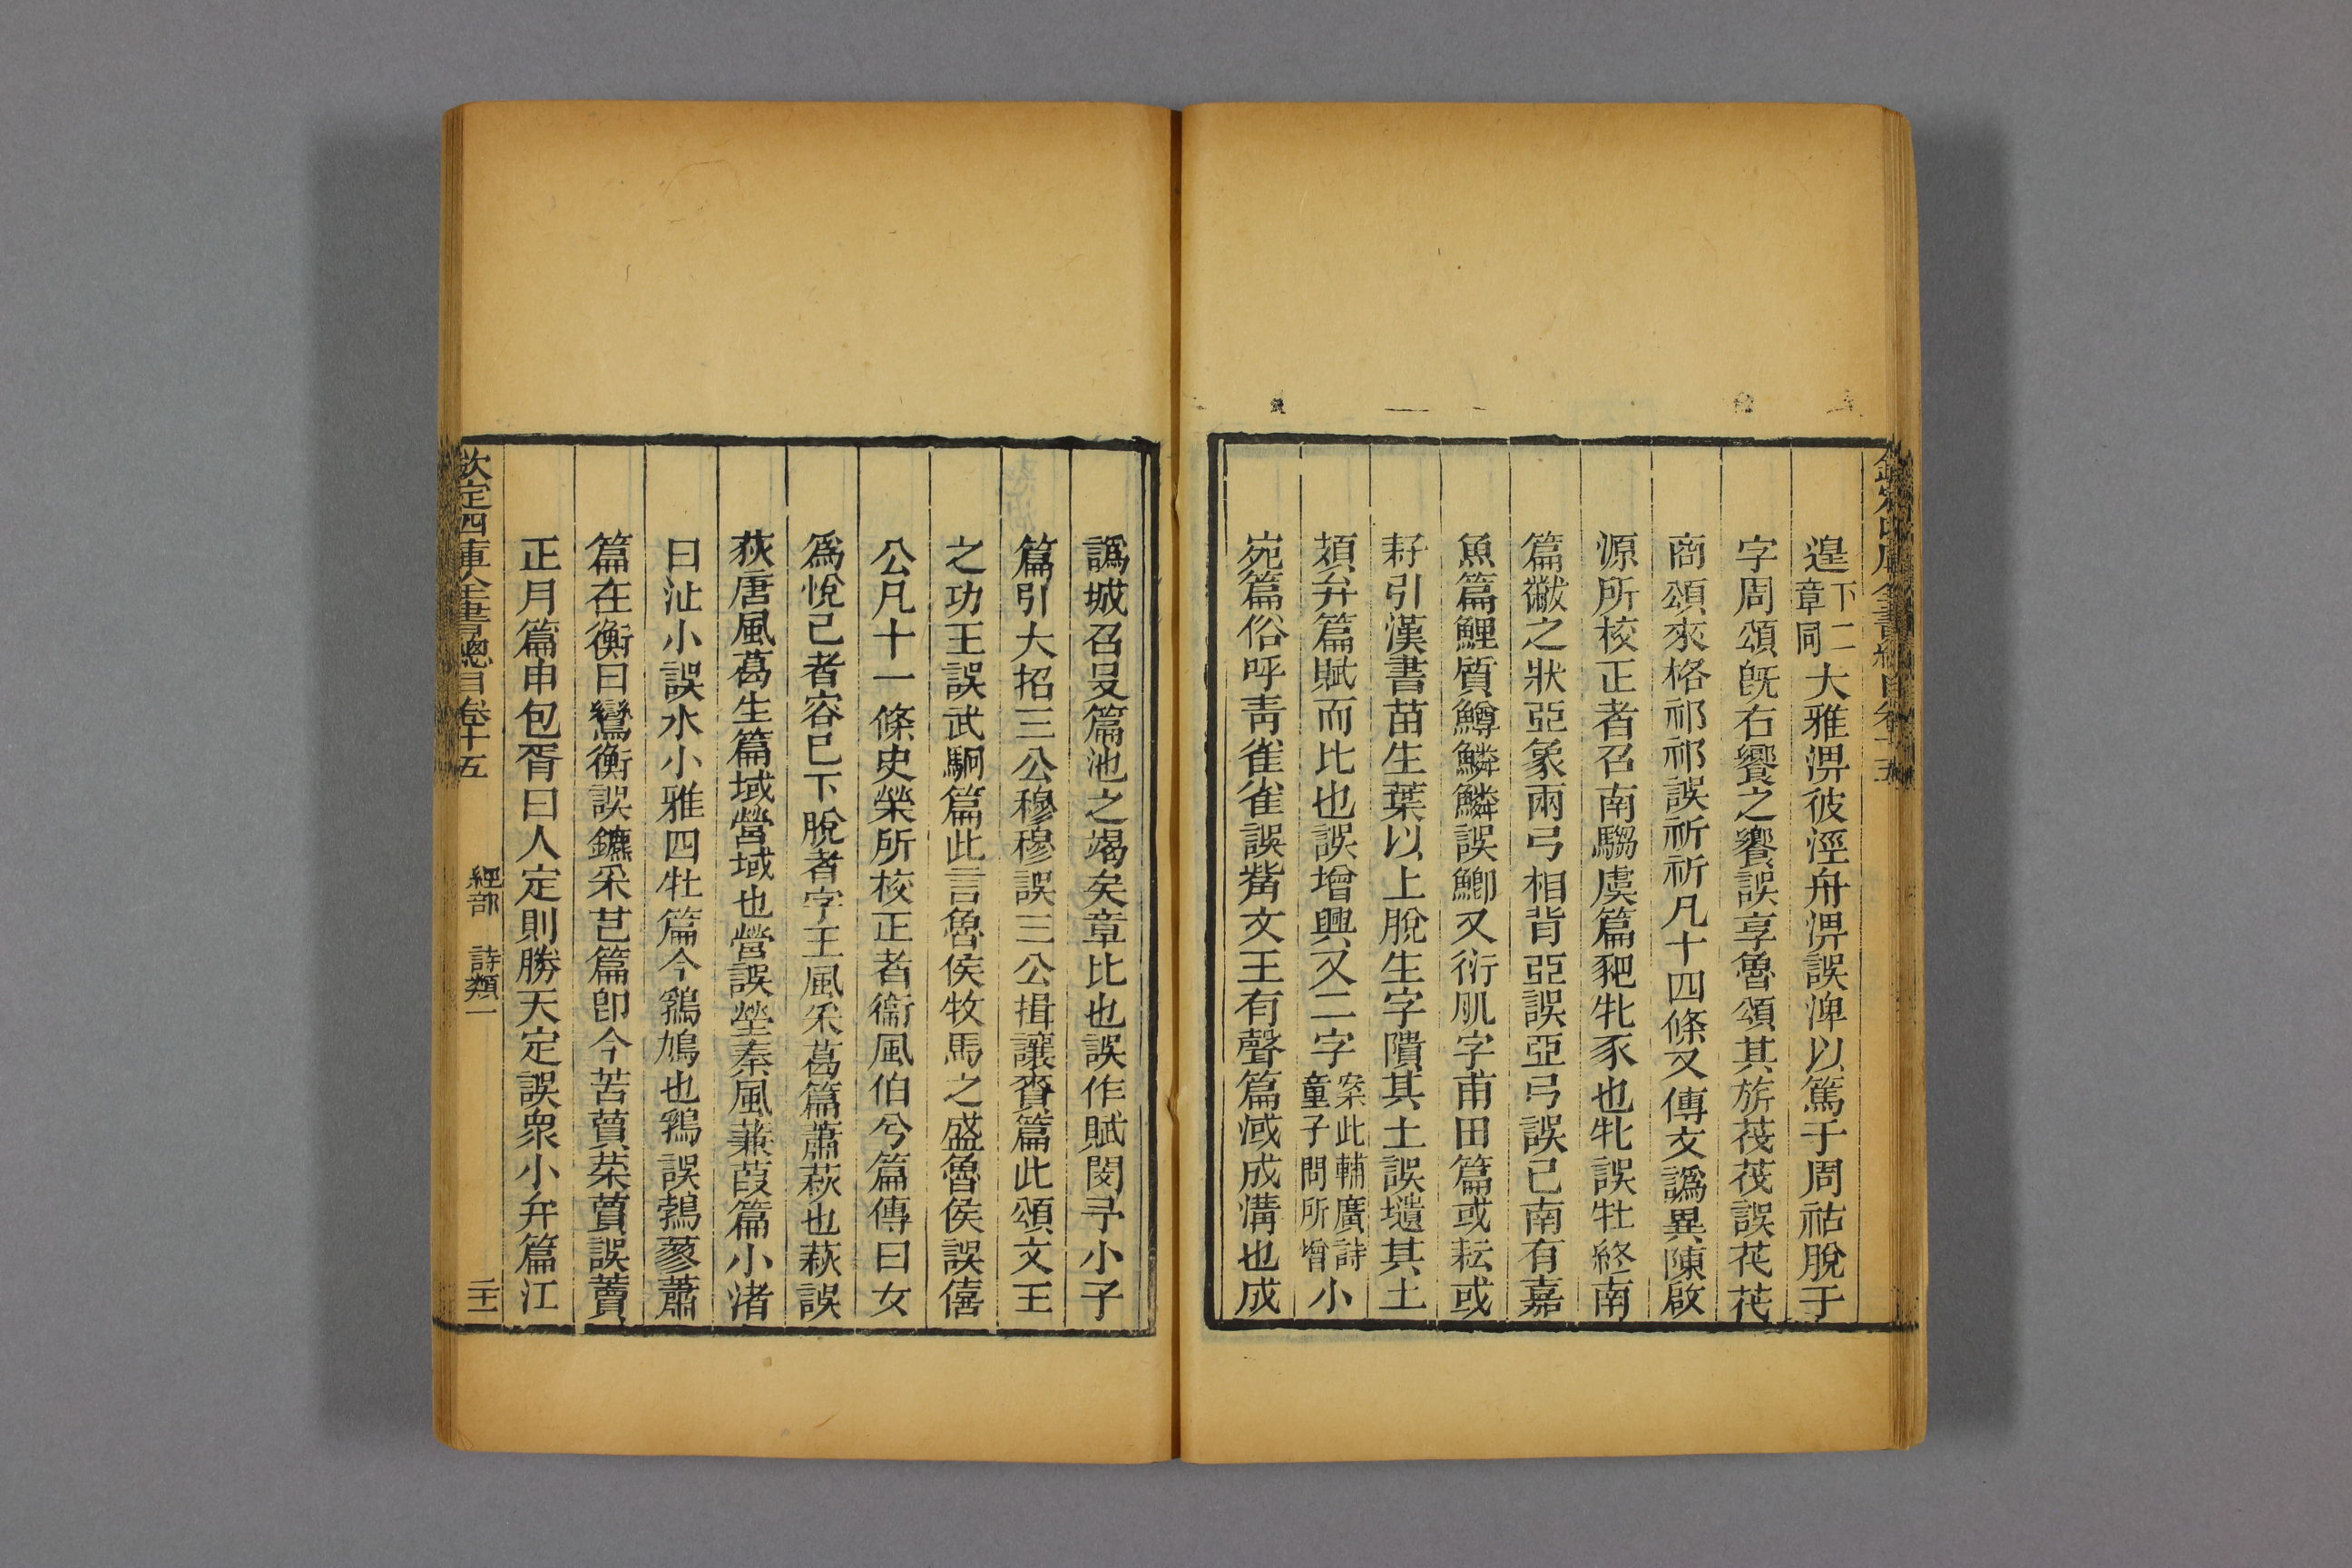 遑下二章同大雅淠彼涇舟淠誤渒以篤于周祜脫于
字周頌旣右饗之饗誤享魯頌其旂茷茷誤花花
商頌來格祁祁誤祈祈凡十四條又傳文譌異陳啟
源所校正者召南騶虞篇豝牝豕也牝誤牡終南
篇黻之狀亞象兩弓相背亞誤亞弓誤已南有嘉
魚篇鯉質鱒鱗鱗誤鯽又衍肌字甫田篇或耘或
耔引漢書苗生葉以上脫生字隤其土誤壝其土
頍弁篇賦而比也誤增興又二字案此輔廣詩童子問所增小
宛篇俗呼靑雀雀誤觜文王有聲篇淢成溝也成
譌城召旻篇池之竭矣章比也誤作賦閔予小子
篇引大招三公穆穆誤三公揖讓賚篇此頌文王
之功王誤武駉篇此言魯侯牧馬之盛魯侯誤僖
公凡十一條史榮所校正者衞風伯兮篇傳曰女
爲悅己者容己下脫者字王風采葛篇蕭萩也萩誤
荻唐風葛生篇域營域也營誤塋秦風蒹葭篇小渚
曰沚小誤水小雅四牡篇今鵓鳩也鵓誤鶉蓼蕭
篇在衡曰鸞衡誤鑣采芑篇卽今苦藚菜藚誤蕒
正月篇申包胥曰人定則勝天定誤衆小弁篇江
欽定四庫全書總目卷十五
經部 詩類一
二十一